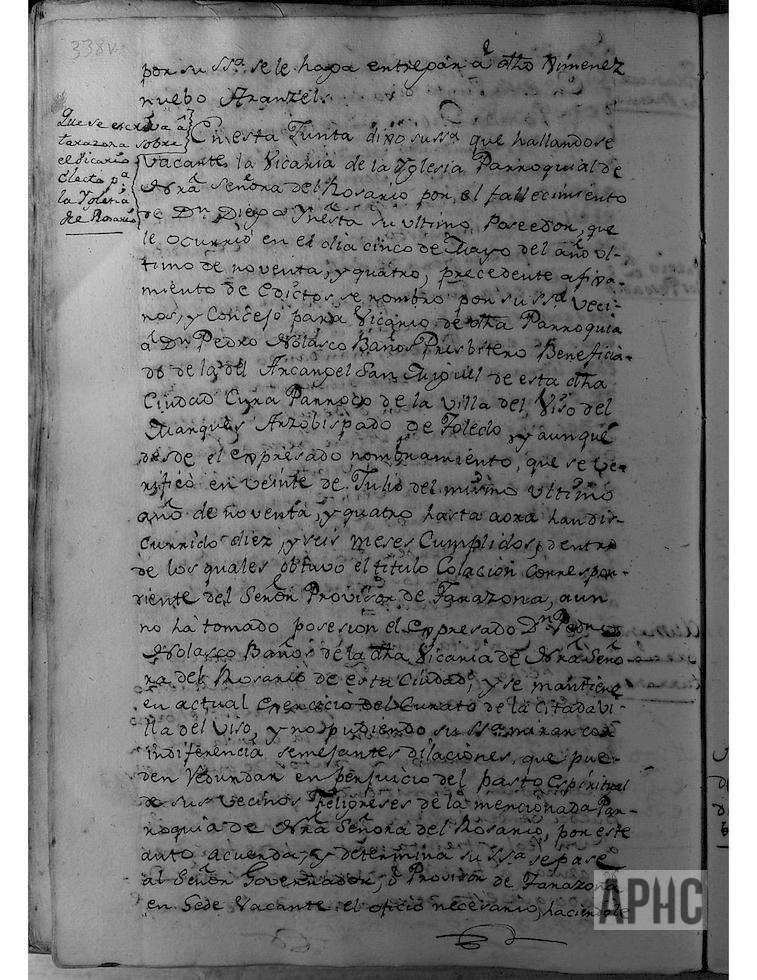 338v.
por su Ssª. se le haga entregar a dho Ximenez
nuebo Aranzel.
Que se escriva á
tarazona sobre
el Vicario
Electo pª
la Yglesia
de Rosario
En esta Junta dixo su ssª que hallandose
Vacante la Vicaria de la Yglesia Parroquial de
Nrâ Señora del Rosario por el fallecimiento
de Dn. Diego Ynesta su ultimo Poseedor, que
le ocurrió en el dia cinco de Mayo del año ul-
timo de noventa, y quatro, precedente afixa-
miento de Edictos se nombro por su ssª Veci-
nos, y Concejo para Vicario de dha Parroquia
á Dn. Pedro Nolasco Baños Presbitero Beneficia-
do de la del Arcangel San Miguel de esta dha
Ciudad Cura Parroco de la Villa del Viso del
Marques Arzobispado de Toledo, y aunque
desde el expresado nombramiento, que se Ve-
rificó en veinte de Julio del mismo ultimo
año de noventa, y quatro hasta aora han dis-
currido diez, y seis meses Cumplidos, dentro
de los quales obtuvo el titulo Colacion Correspon-
diente del Señor Provisor de Tarazona, aun
no ha tomado posesion el expresado Dn. Pedro
Nolasco Baños de la dha Vicaria de Nrâ Seño-
ra del Rosario de esta Ciudad, y se mantiene
en actual Exercicio del Curato de la Citada Vi-
lla del Viso, y no pudiendo su ssª mirar con
indiferencia semejantes dilaciones, que pue-
den Redundar en perjuicio del pasto Espiritual
de sus vecinos Feligreses de la mencionada Par-
roquia de Nrâ Señora del Rosario, por este
auto acuerda, y determina su Ssª se pase
al Señor Governador, ó Provisor de Tarazona
en Sede Vacante el oficio necesario, haciendole
APHC